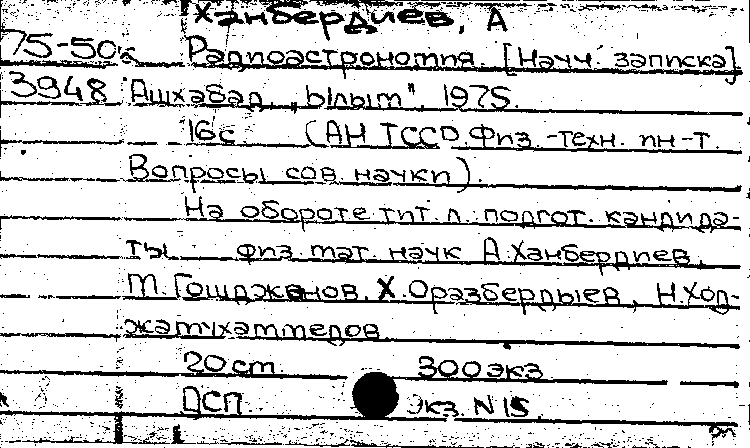 Ханбердиев, А
75-50к Радиоастрономия. [Науч. записка]
3948 Ашхабад, „Ылым", 1975.
16с. (АН ТССР. Физ.-техн. ин-т.
Вопросы сов. науки).
На обороте тит. л.: подгот. кандида-
ты физ. мат. наук А.Ханбердиев,
М. Гошджанов, Х. Оразбердыев, Н.Ход-
жамухаммедов
20 ст. 300 экз
ДСП. Экз. N 15.